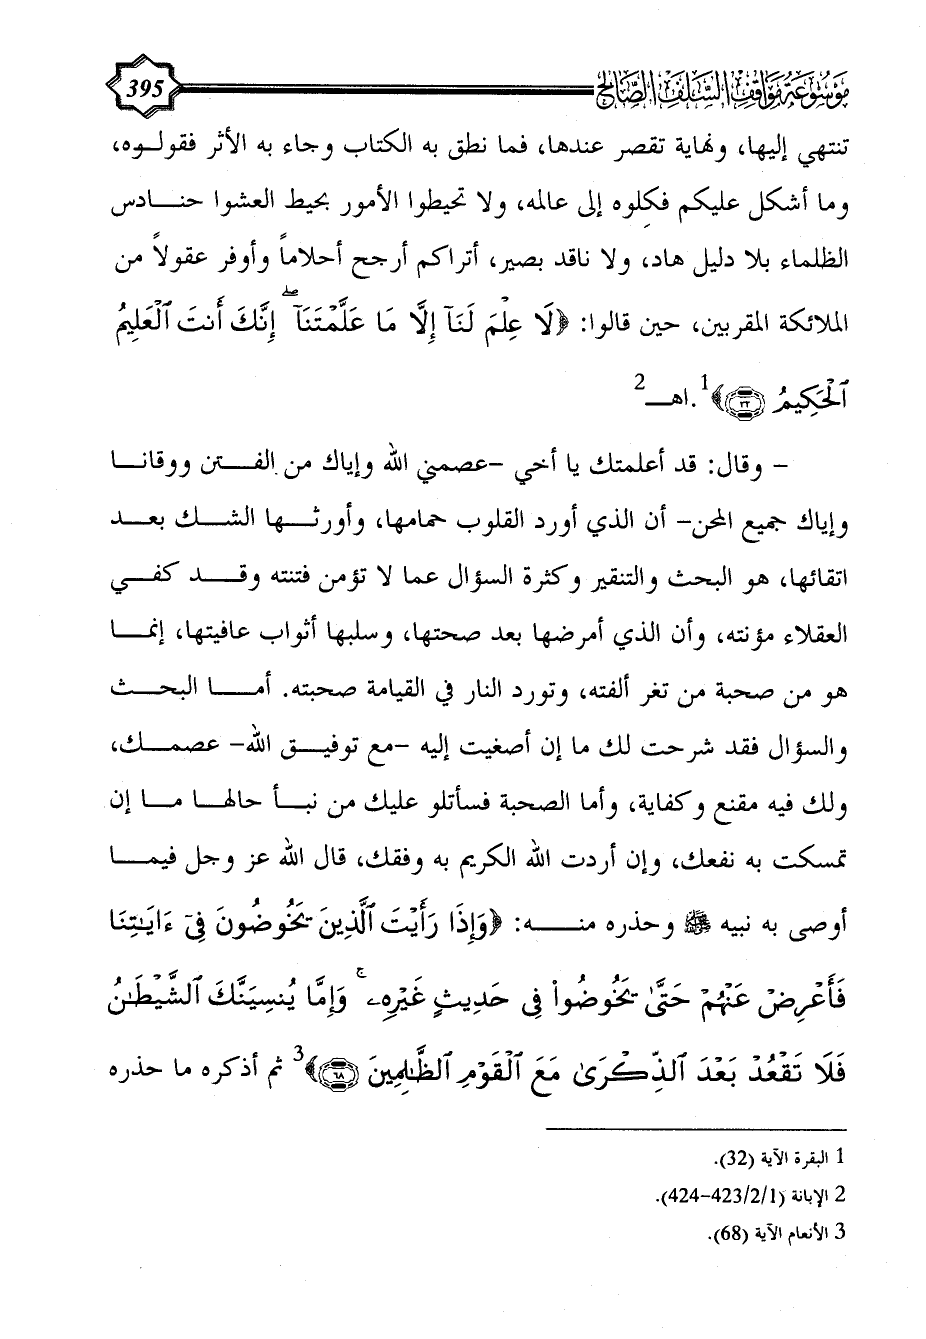 موسوعة مواقف السلف الصالح
395
تنتهي إليها، ونهاية تقصر عندها، فما نطق به الكتاب وجاء به الأثر فقولوه،
وما أشكل عليكم فكلوه إلى عالمه، ولا تحيطوا الأمور بحيط العشوا حنـادس
الظلماء بلا دليل هاد، ولا ناقد بصير، أتراكم أرجح أحلاماً وأوفر عقولاً من
الملائكة المقربين، حين قالوا: ﴿لَا عِلْمَ لَنَآ إِلَّا مَا عَلَّمْتَنَآ ۖ إِنَّكَ أَنتَ ٱلْعَلِيمُ
ٱلْحَكِيمُ ٣٢﴾1.اهـ2
- وقال: قد أعلمتك يا أخي -عصمني الله وإياك من الفـتن ووقانـا
وإياك جميع المحن- أن الذي أورد القلوب حمامها، وأورثـها الشـك بعـد
اتقائها، هو البحث والتنقير وكثرة السؤال عما لا تؤمن فتنته وقـد كفـي
العقلاء مؤنته، وأن الذي أمرضها بعد صحتها، وسلبها أثواب عافيتها، إنمـا
هو من صحبة من تغر ألفته، وتورد النار في القيامة صحبته. أمـا البحـث
والسؤال فقد شرحت لك ما إن أصغيت إليه -مع توفيـق الله- عصمـك،
ولك فيه مقنع وكفاية، وأما الصحبة فسأتلو عليك من نبـأ حالهـا مـا إن
تمسكت به نفعك، وإن أردت الله الكريم به وفقك، قال الله عز وجل فيمـا
أوصى به نبيه ﷺ وحذره منـه: ﴿وَإِذَا رَأَيْتَ ٱلَّذِينَ يَخُوضُونَ فِىٓ ءَايَـٰتِنَا
فَأَعْرِضْ عَنْهُمْ حَتَّىٰ يَخُوضُوا۟ فِى حَدِيثٍ غَيْرِهِۦ ۚ وَإِمَّا يُنسِيَنَّكَ ٱلشَّيْطَـٰنُ
فَلَا تَقْعُدْ بَعْدَ ٱلذِّكْرَىٰ مَعَ ٱلْقَوْمِ ٱلظَّـٰلِمِينَ ٦٨﴾3 ثم أذكره ما حذره
1 البقرة الآية (32).
2 الإبانة (1/2/423-424).
3 الأنعام الآية (68).